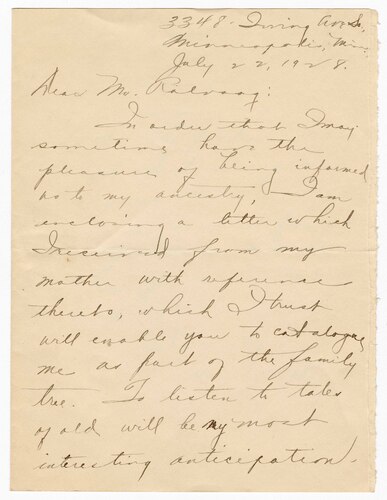 3348 - Irving Ave So.
Minneapolis, Minn.
July 22, 1928.
Dear Mr. Rolvaag:
In order that I may
sometime have the
pleasure of being informed
as to my ancestry, I am
enclosing a letter which
I received from my
mother with reference
thereto, which I trust
will enable you to catalogue
me as part of the family
tree. To listen to tales
of old will be my most
interesting anticipation.